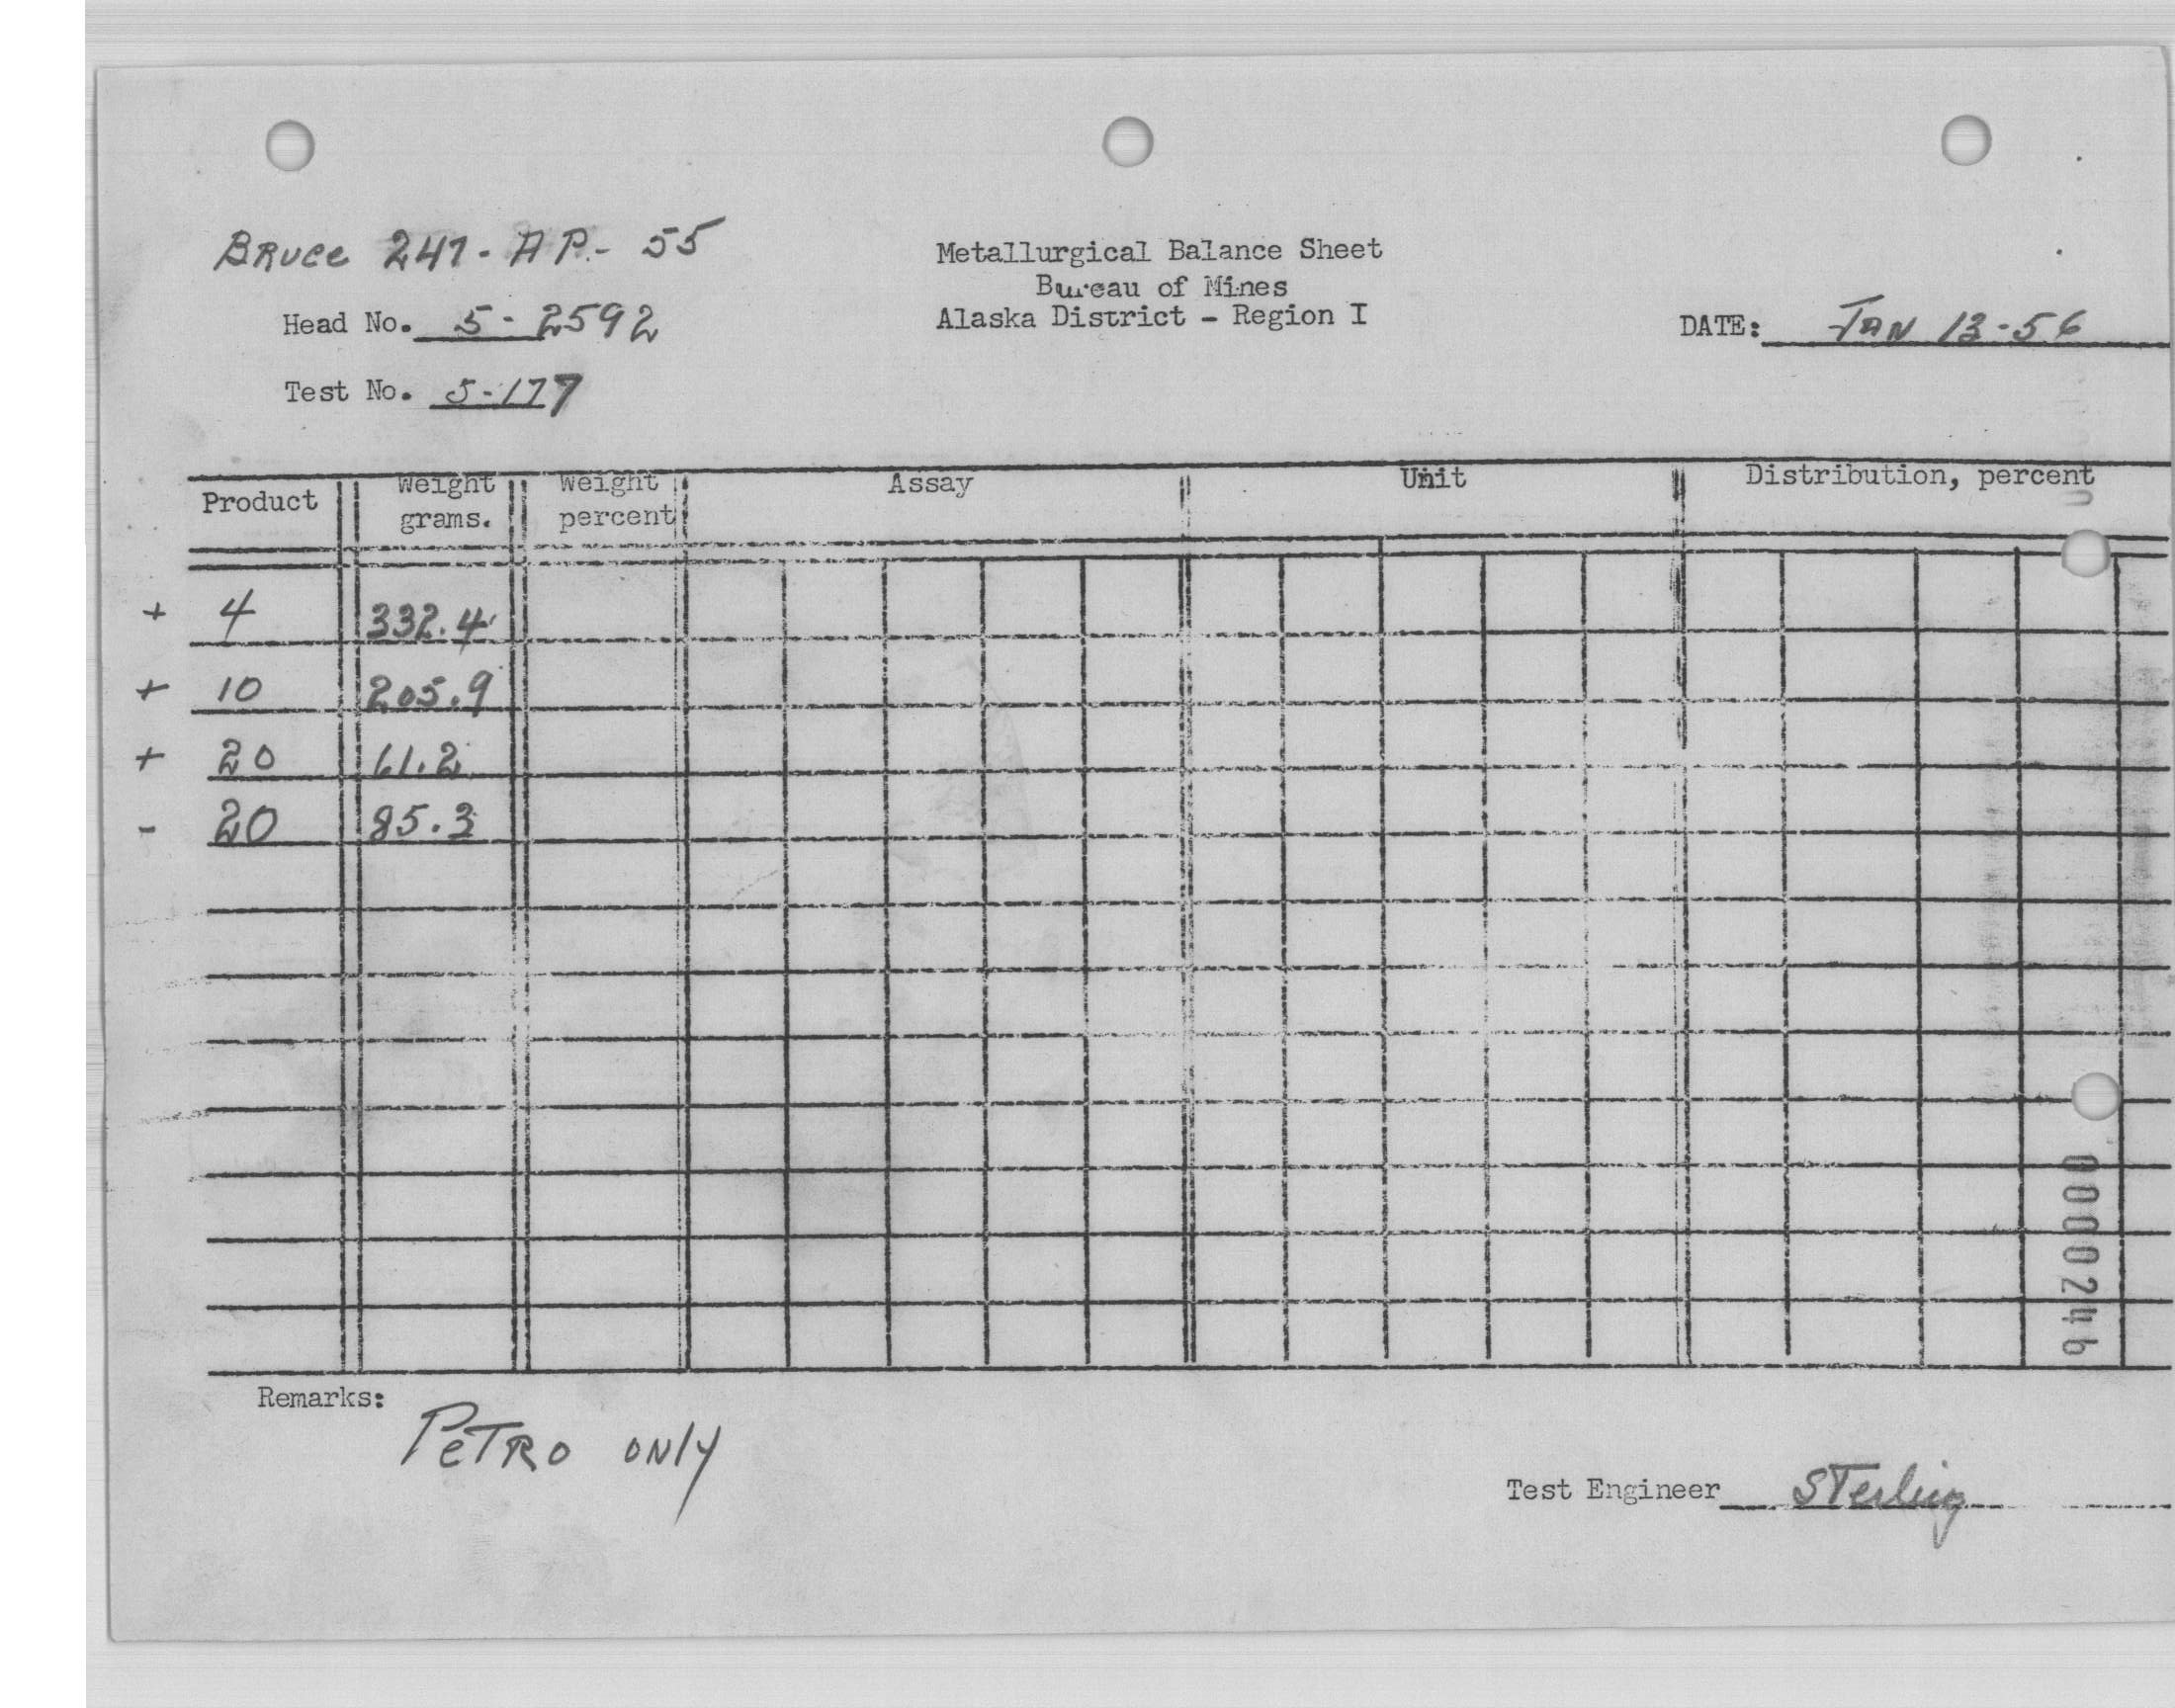 Bruce 247-AP-55
Metallurgical Balance Sheet
Bureau of Mines
Alaska District - Region I
Head No. 5-2592
DATE: JAN 13-56
Test No. 5-177
Product Weight grams. Weight percent Assay Unit Distribution, percent
+ 4 332.4
+ 10 205.9
+ 20 61.2
- 20 85.3
0000246
Remarks:
PETRO ONLY
Test Engineer Sterling